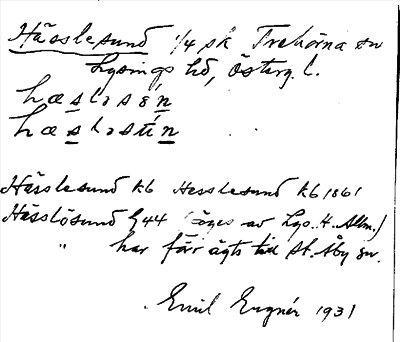 Hässlesund 1/4 sk Trehörna sn
Lysings hd, Österg. l.
hæslɘsén
hæslɘstín
Hässlesund kb Hesslesund kb 1861
Hässlösund G 44 (äges av Lys. H. Allm.)
" har förr ägts till St. Åby sn.
Emil Eugnér 1931